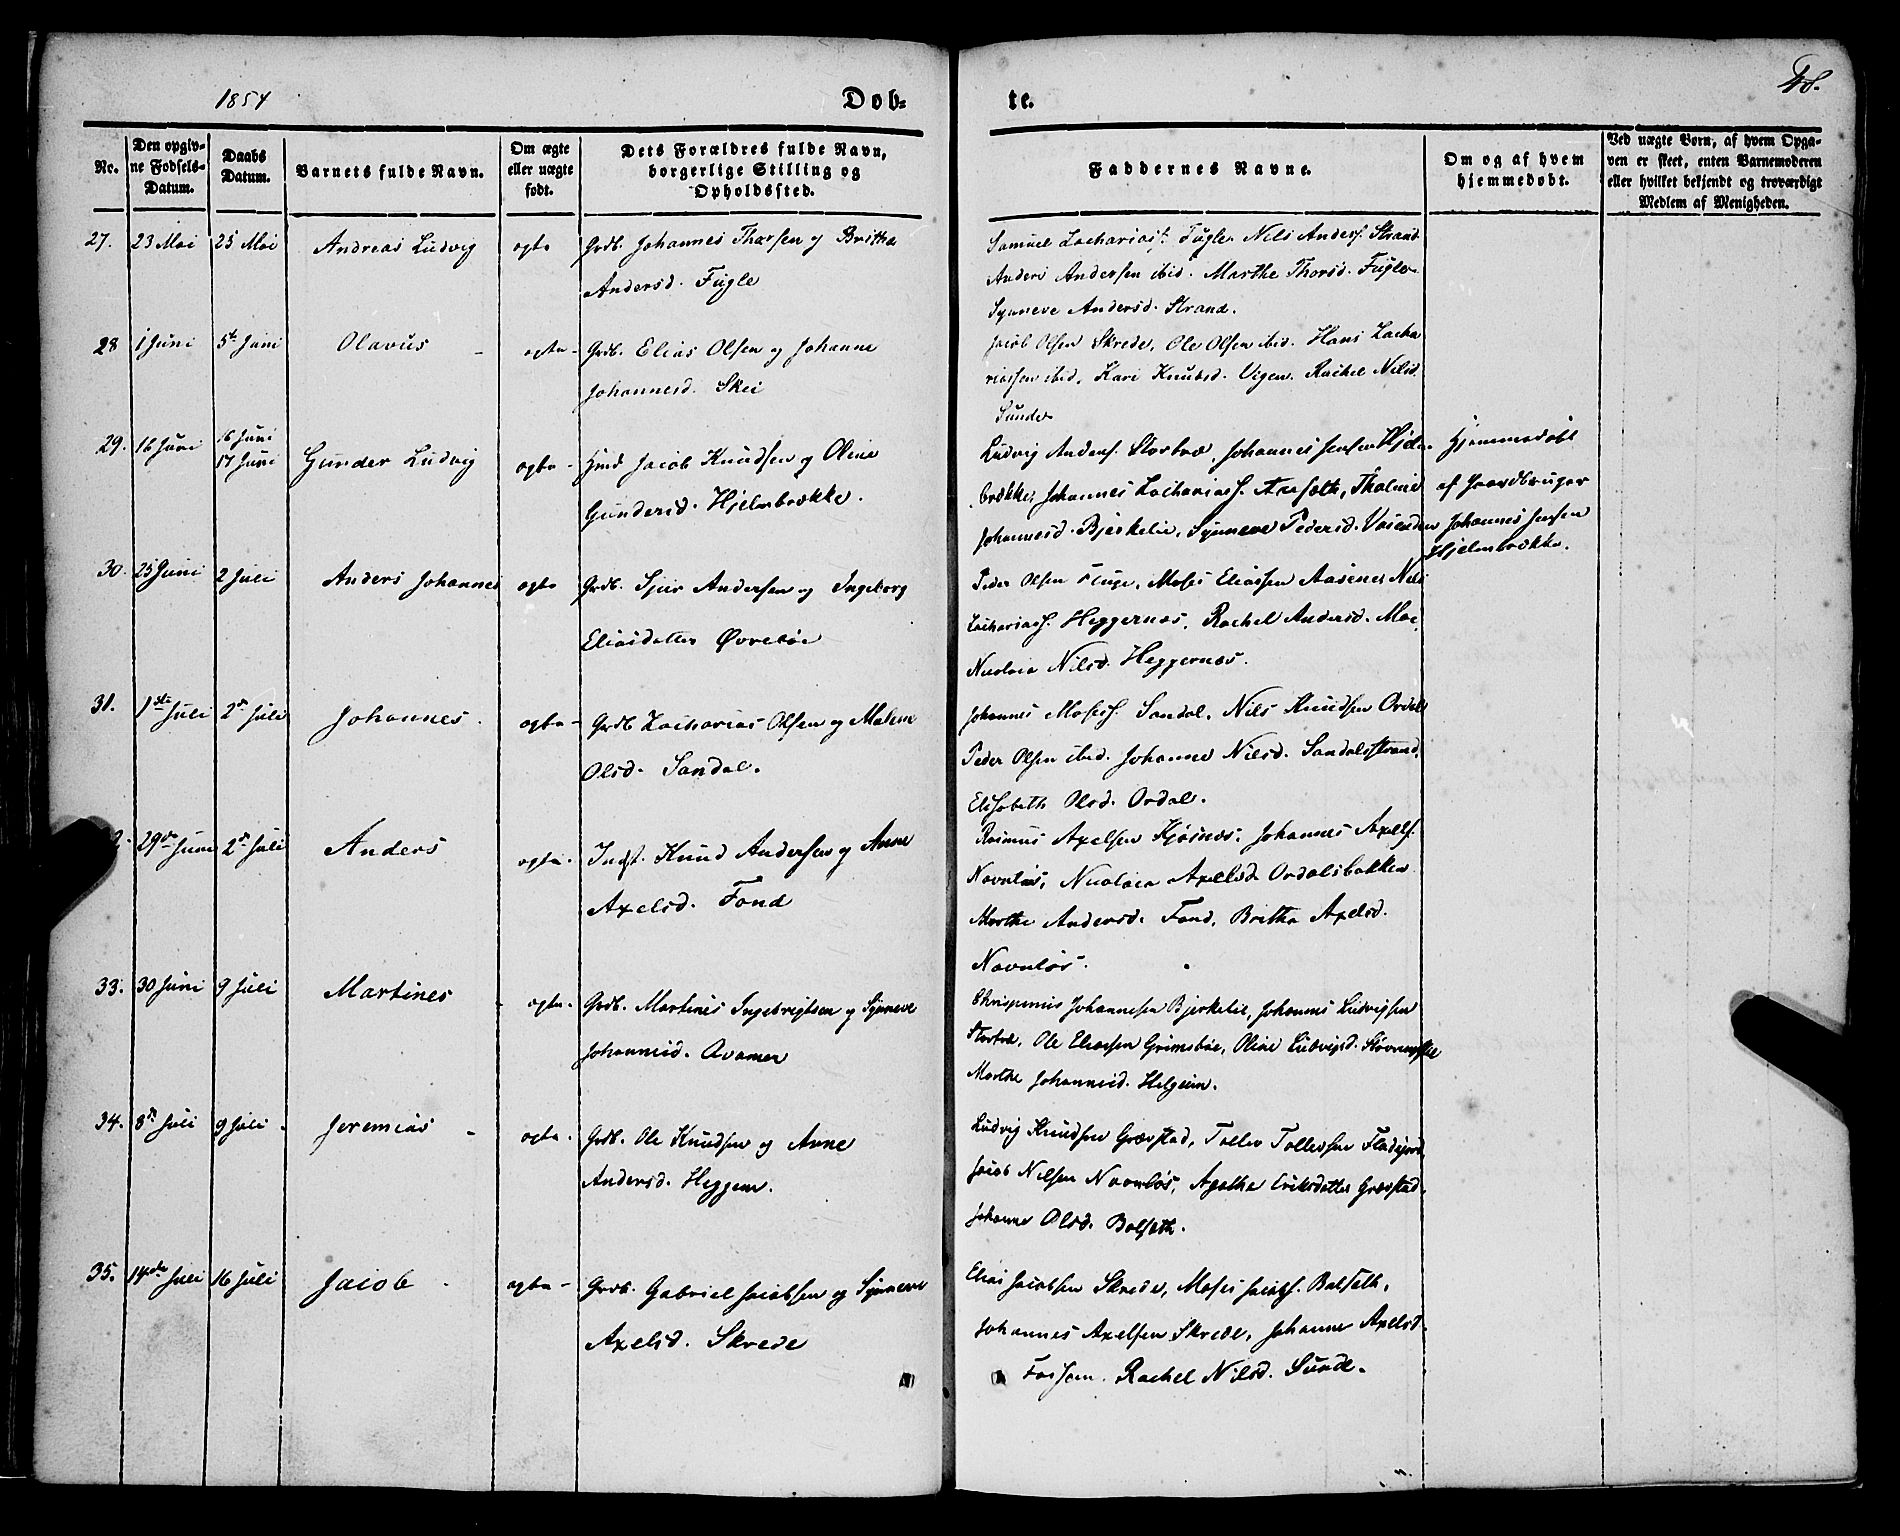 1854
Døb=
te.
48.
No.
Den opgiv-
ne Fødsels-
Datum.
Daabs
Datum.
Barnets fulde Navn.
Om ægte
eller uægte
født.
Dets Forældres fulde Navn,
borgerlige Stilling og
Opholdssted.
Faddernes Navne.
Om og af hvem
hjemmedøbt.
Ved uægte Børn, af hvem Opga-
ven er skeet, enten Barnemoderen
eller hvilket bekjendt og troværdigt
Medlem af Menigheden.
27. 23 Mai 25 Mai Andreas Ludvig ægte Grdb. Johannes Thorsen og Britha
Andersd. Fugle
Samuel Zachariass. Fugle, Nils Anders. Strand
Anders Andersen ibid. Marthe Thorsd. Fugle
Synneve Andersd. Strand.
28 1 Juni 5te Juni Olavus - ægte - Grdb. Elias Olsen og Johanne
Johannesd. Skei
Jacob Olsen Skrede, Ole Olsen ibid. Hans Zacha
riassen ibid, Kari Knudsd. Vigen. Rachel Nilsd.
Sunde
29. 16 Juni 16 Juni
17 Juni Gunder Ludvig ægte - Hmd Jacob Knudsen og Oline
Gundersd. Hjelmbrække.
Ludvig Anders. Storbræ, Johannes Jensen Hjelm-
brække, Johannes Zachariass. Aaseth, Thalmie
Johannesd. Bjerkelie, Synneve Pedersd. Vasenden
Hjemmedøbt
af Gaardbruger
Johannes Jensen
Hjelmbrække.
30. 25 Juni 2 Juli Anders Johannes ægte Grdb. Sjur Andersen og Ingeborg
Eliasdatter Øvrebøe
Peder Olsen Fluge, Moses Eliassen Aasenes Nils
Zachariass. Heggernæs, Rachel Andersd. Moe,
Nicolaia Nilsd. Heggernæs.
31. 1ste Juli 2den Juli Johannes. ægte - Grdb Zacharias Olsen og Malene
Olsd. Sandal.
Johannes Moses. Sandal, Nils Knudsen Ordal
Peder Olsen ibid. Johanne Nilsd. Sandalsstrand,
Elisabeth Olsd. Ordal.
29de Juni 2den Juli Anders ægte. Indst. Knud Andersen og Anne
Axelsd. Fond
Rasmus Axelsen Kjøsnæs, Johannes Axels.
Navnløs, Nicolaia Axelsd. Ordalsbakken
Marthe Andersd. Fond, Britha Axelsd.
Navnløs.
33. 30 Juni 9 Juli Martines - ægte. Grdb. Martines Ingebrigtsen og Synneve
Johannesd. Aamer
Johannesen Bjerkelie, Johannes Ludvigsen
Storbræ, Ole Eliassen Grimsbøe, Oline Ludvigsd.
Marthe Johannesd. Helgeim.
34. 8de Juli 9 Juli. Jeremias - ægte. Grdb. Ole Knudsen og Anne
Andersd. Heggem.
Ludvig Knudsen Grøvstad, Tollev Tollevsen
Jacob Nilsen Navnløs, Agatha Eriksdatter Grøvstad.
Johanne Olsd. Bolseth.
35. 14de Juli 16 Juli Jacob - ægte - Grdb. Gabriel Jacobsen og Synneve
Axelsd. Skrede
Elias Jacobsen Skrede, Moses Jacobs. Bolseth,
Johannes Axelsen Skrede, Johanne Axelsd.
Fossem. Rachel Nilsd. Sunde.